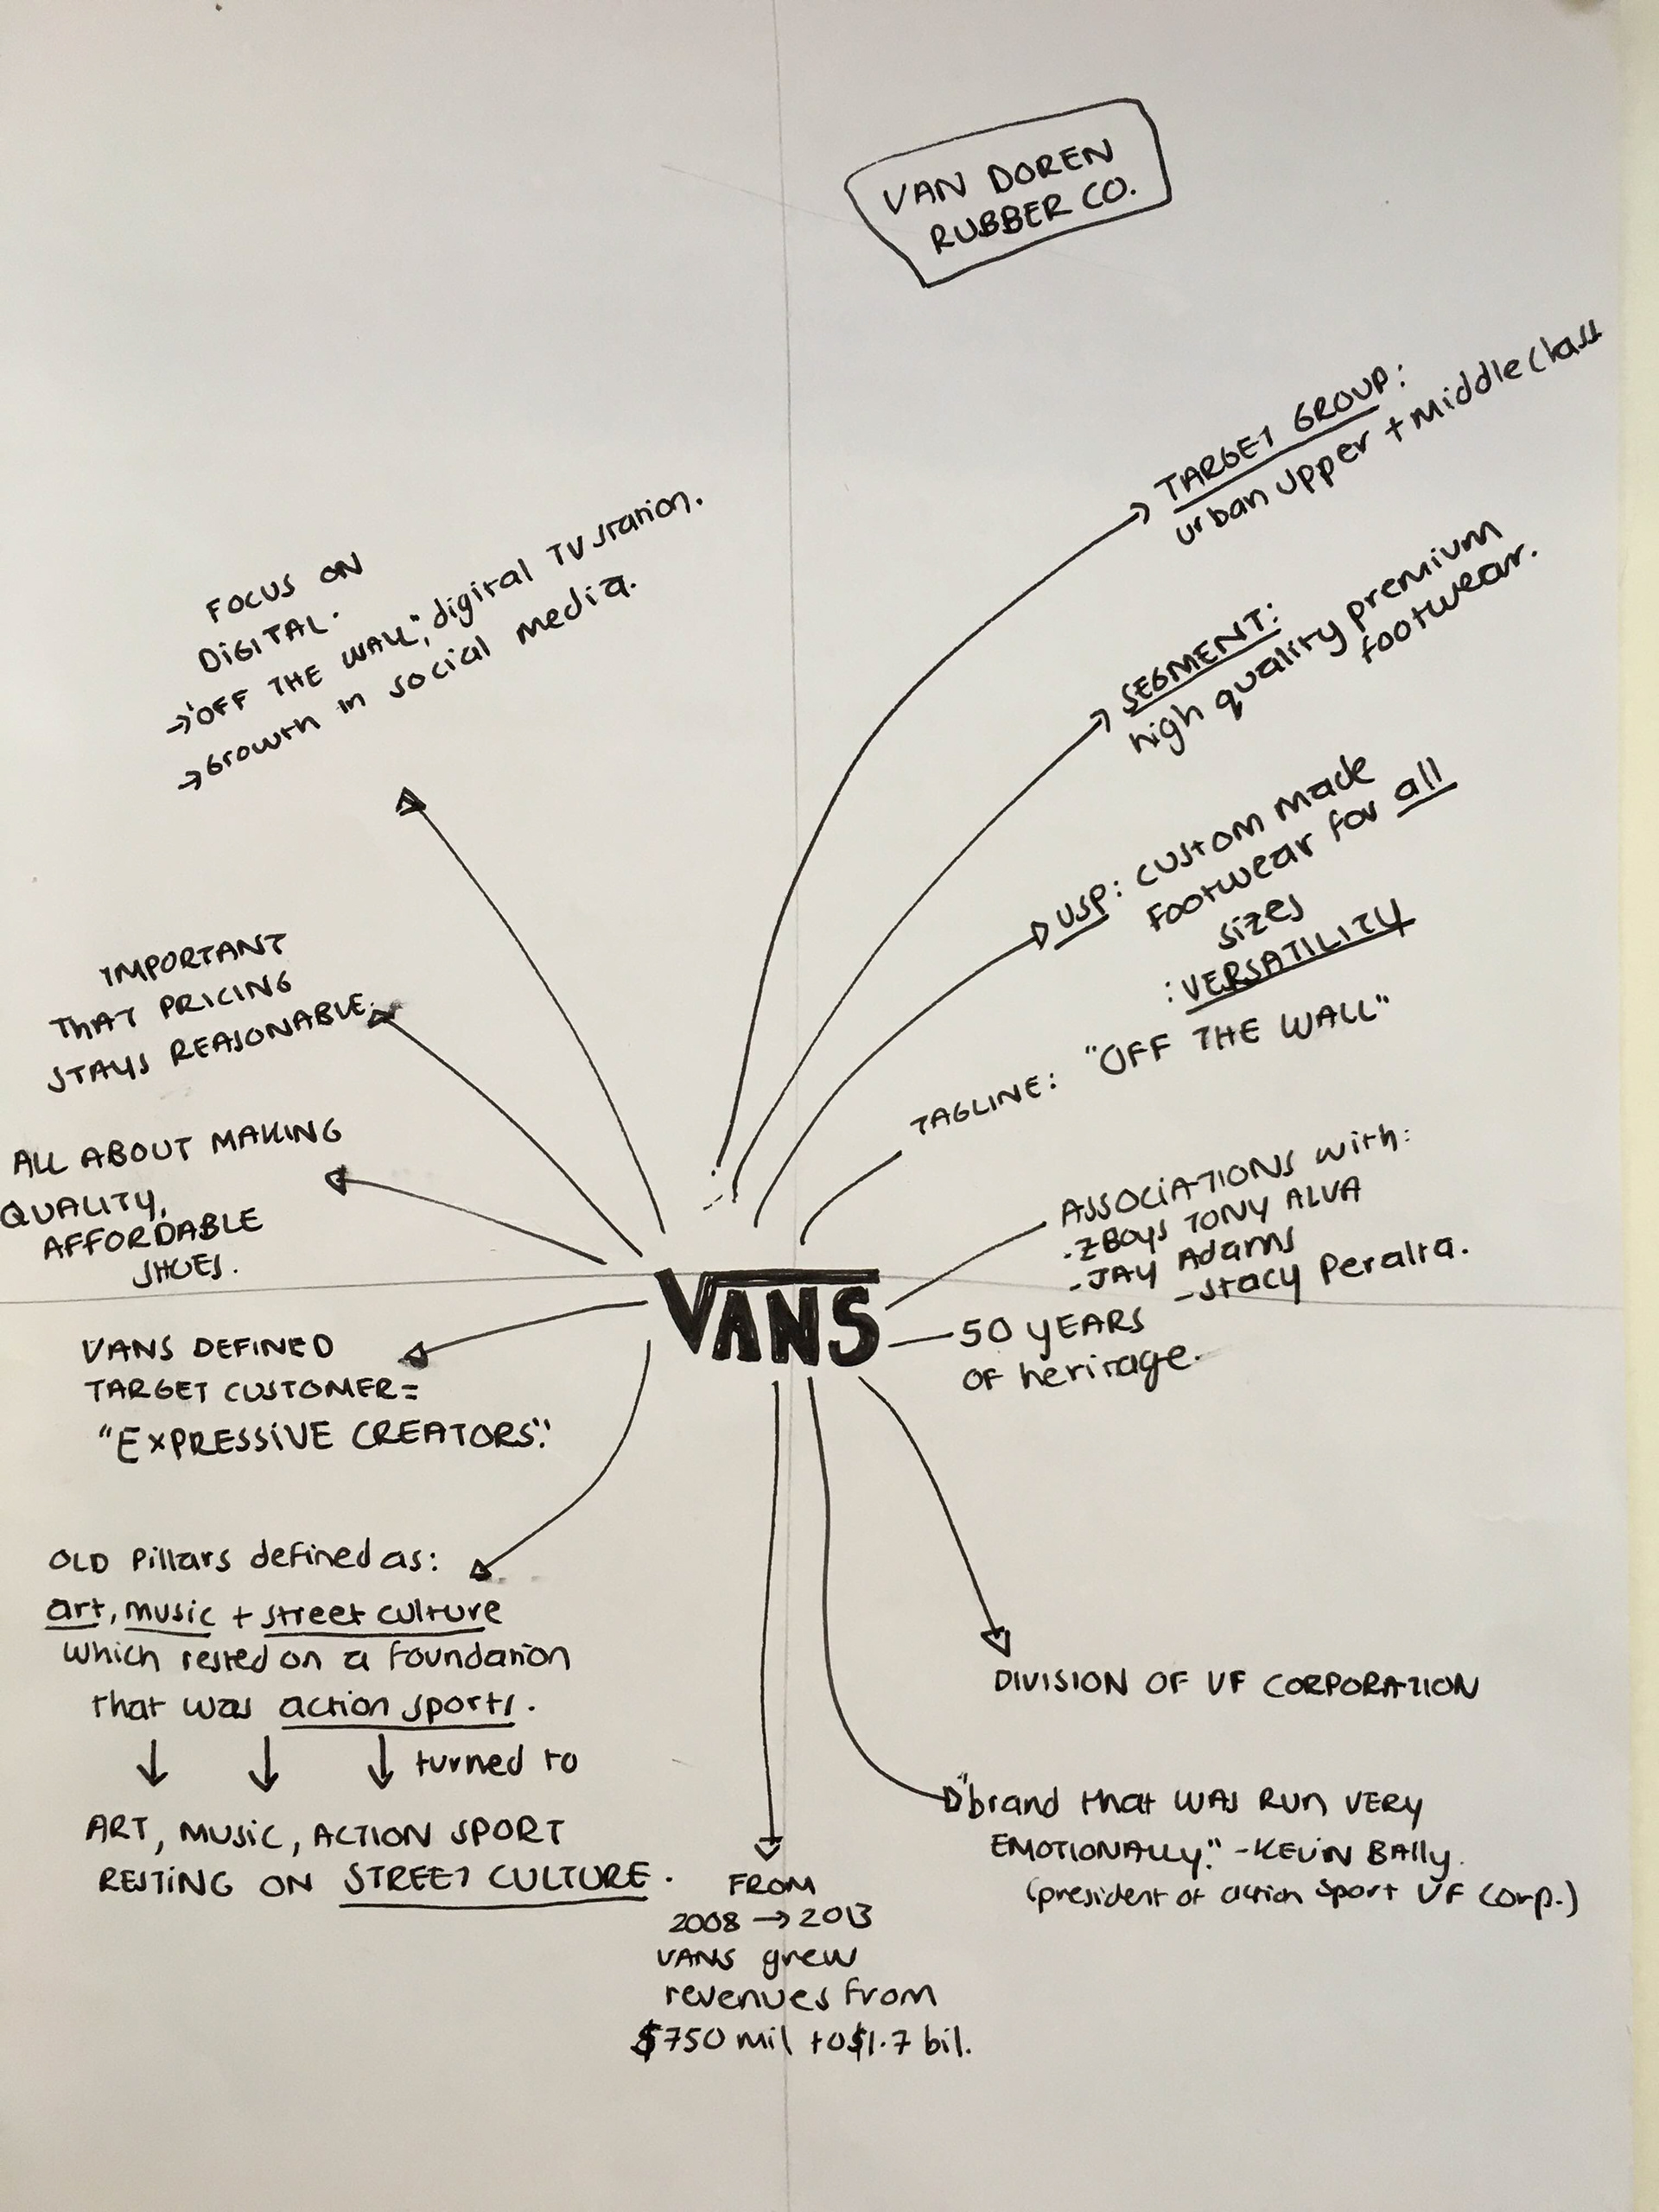 VAN DOREN
RUBBER CO.
TARGET GROUP:
urban upper + middle class
SEGMENT:
high quality premium
footwear.
USP: custom made
footwear for all
sizes
: VERSATILITY
TAGLINE: "OFF THE WALL"
ASSOCIATIONS with:
- ZBoys TONY ALVA
- JAY Adams
- Stacy Peralta.
50 YEARS
OF heritage.
FOCUS ON
DIGITAL.
→ "OFF THE WALL", digital TV station.
→ Growth in social media.
IMPORTANT
THAT PRICING
STAYS REASONABLE.
ALL ABOUT MAKING
QUALITY,
AFFORDABLE
SHOES.
VANS
VANS DEFINED
TARGET CUSTOMER =
"EXPRESSIVE CREATORS".
OLD Pillars defined as:
art, music + street culture
which rested on a foundation
that was action sports.
↓ ↓ ↓ turned to
ART, MUSIC, ACTION SPORT
RESTING ON STREET CULTURE.
FROM
2008 → 2013
VANS grew
revenues from
$750 mil to $1.7 bil.
DIVISION OF VF CORPORATION
"brand that WAS RUN VERY
EMOTIONALLY." - KEVIN BAILY.
(president of action sport VF Corp.)